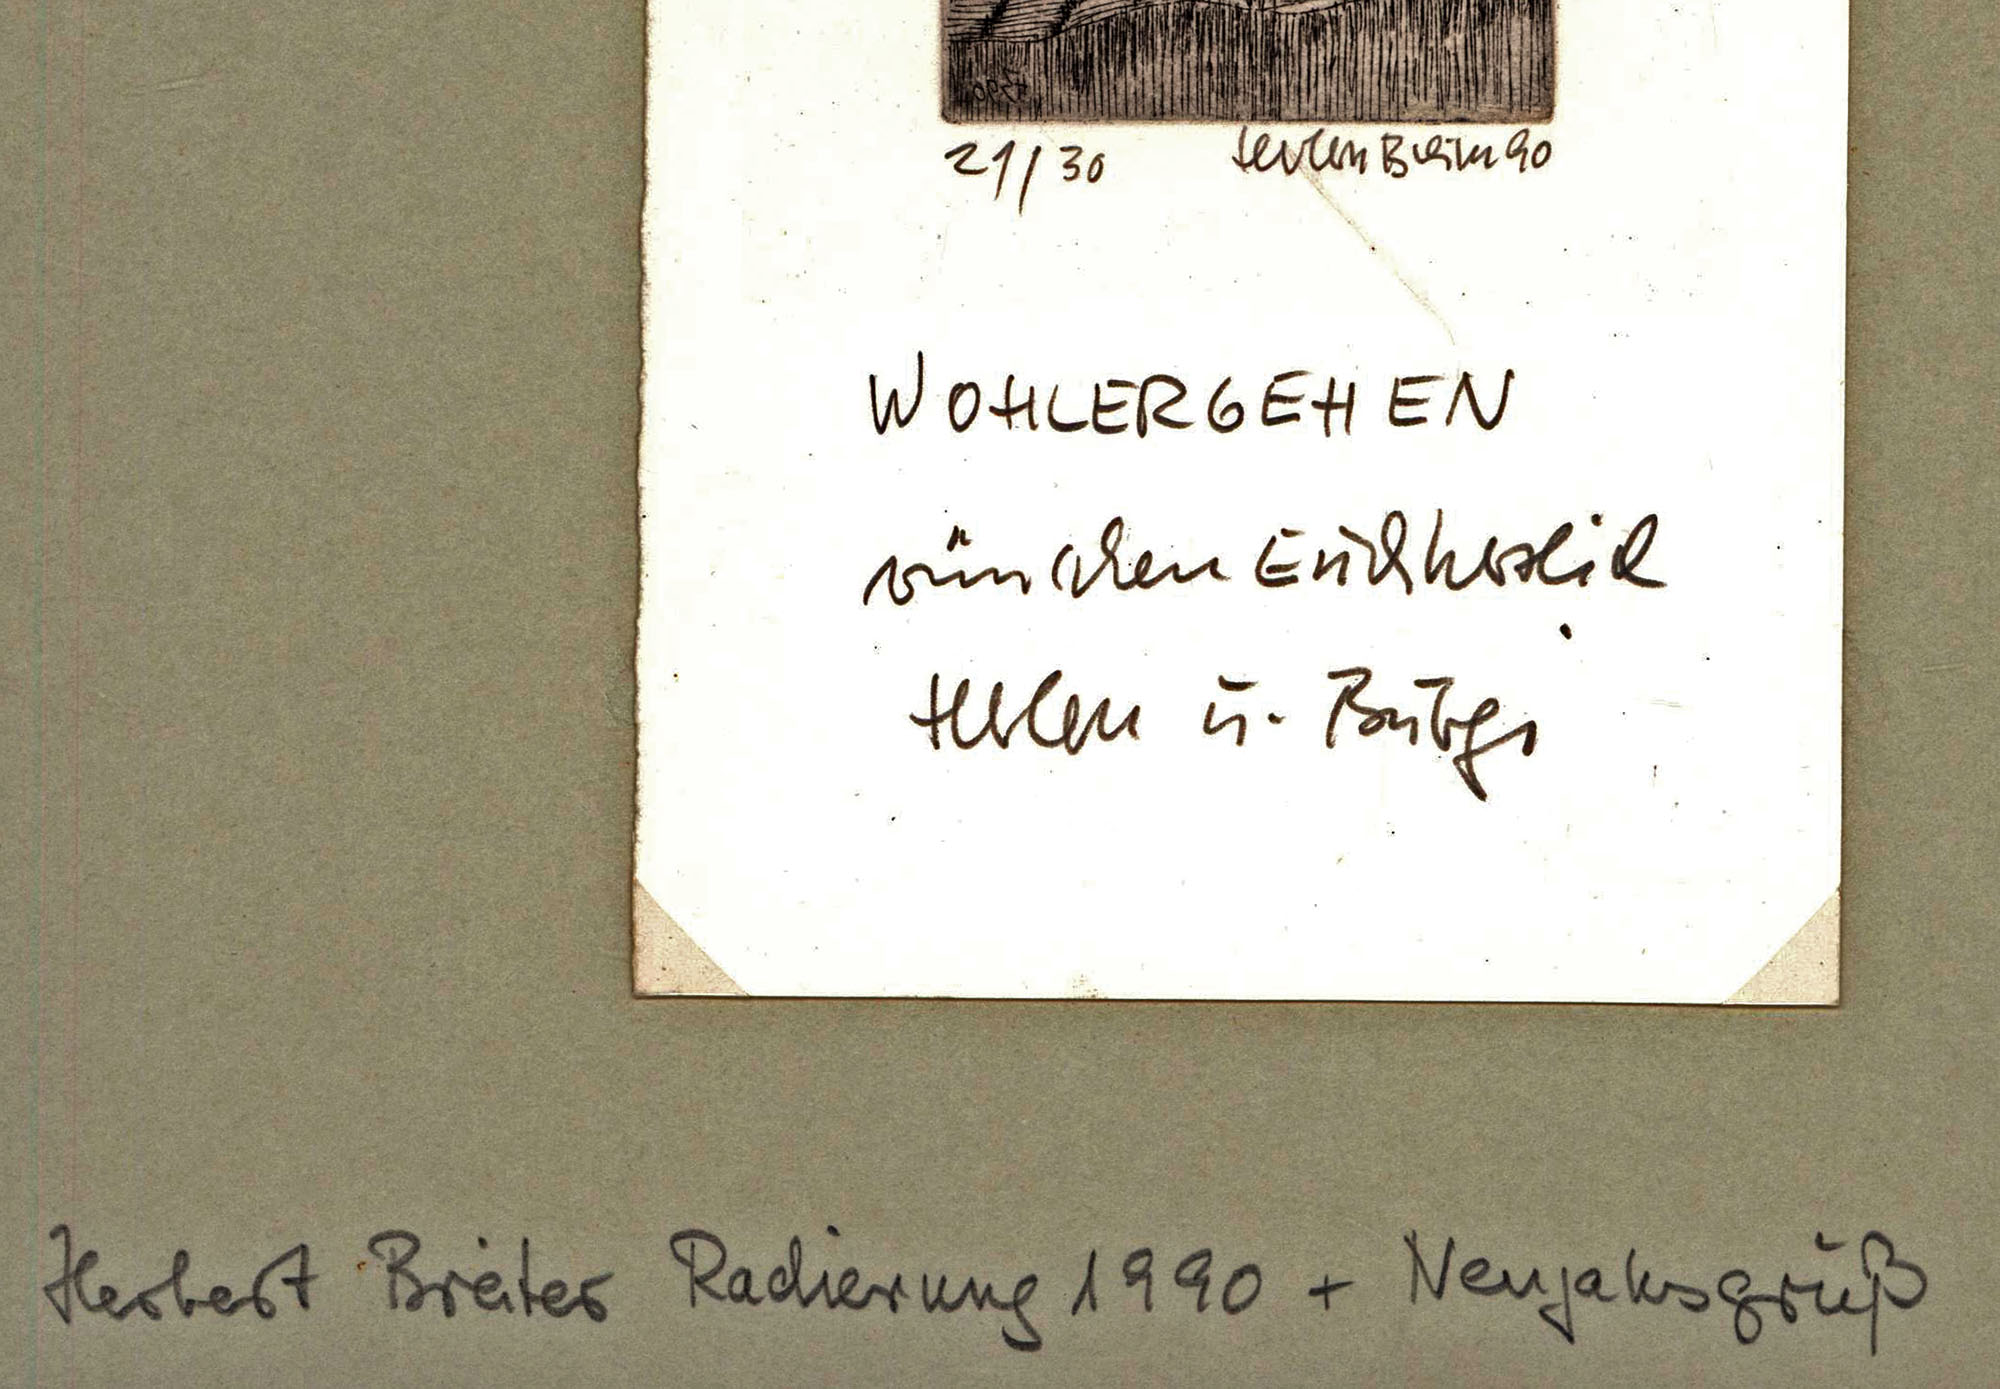 21/30 Herbert Breiter 90
WOHLERGEHEN
wünschen Euch herzlich
Herbert u. Burgi
Herbert Breiter Radierung 1990 + Neujahrsgruß